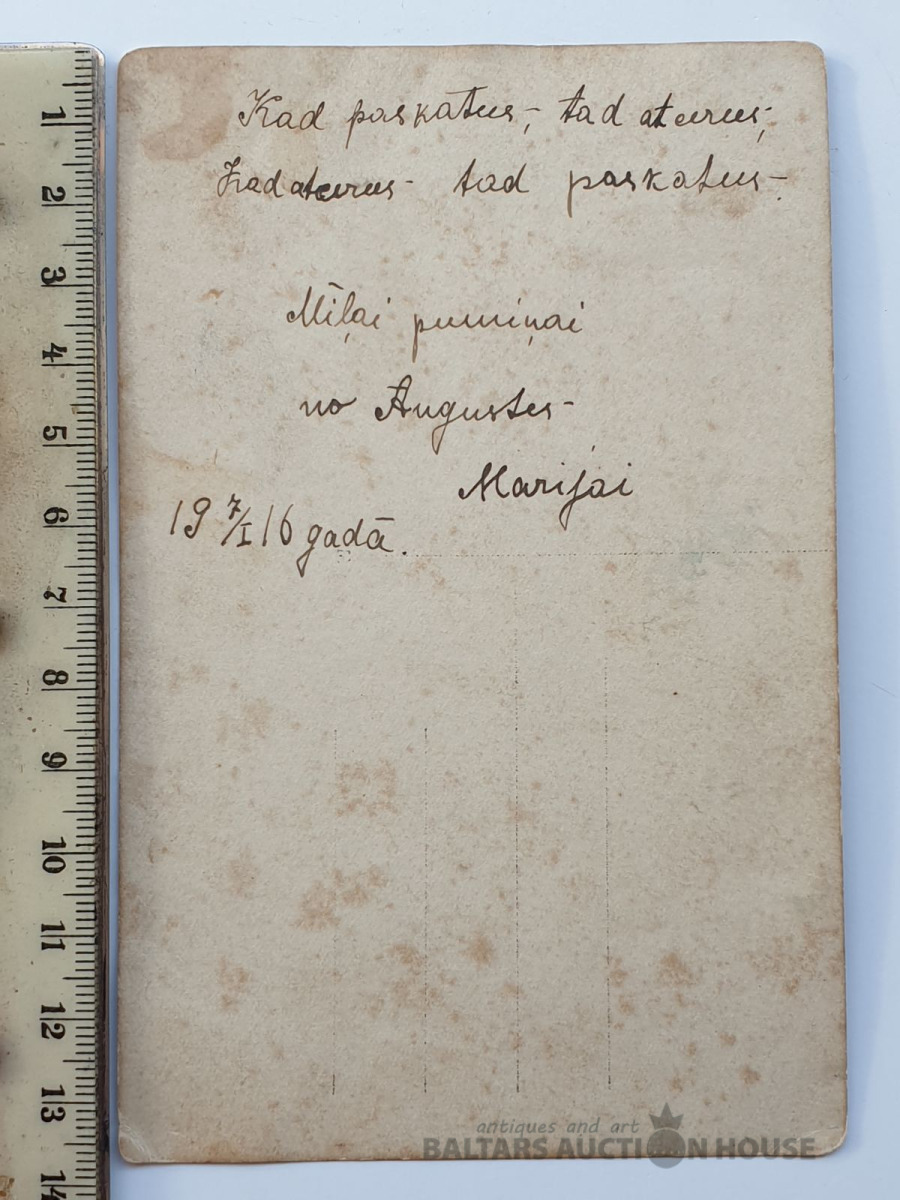 Kad paskatus, tad atcerus,
kad atcerus tad paskatus
Mīļai pumiņai
no Augustes
Marijai
19 7/I 16 gadā.
1
2
3
4
5
6
7
8
9
10
11
12
13
14
antiques and art
BALTARS AUCTION HOUSE